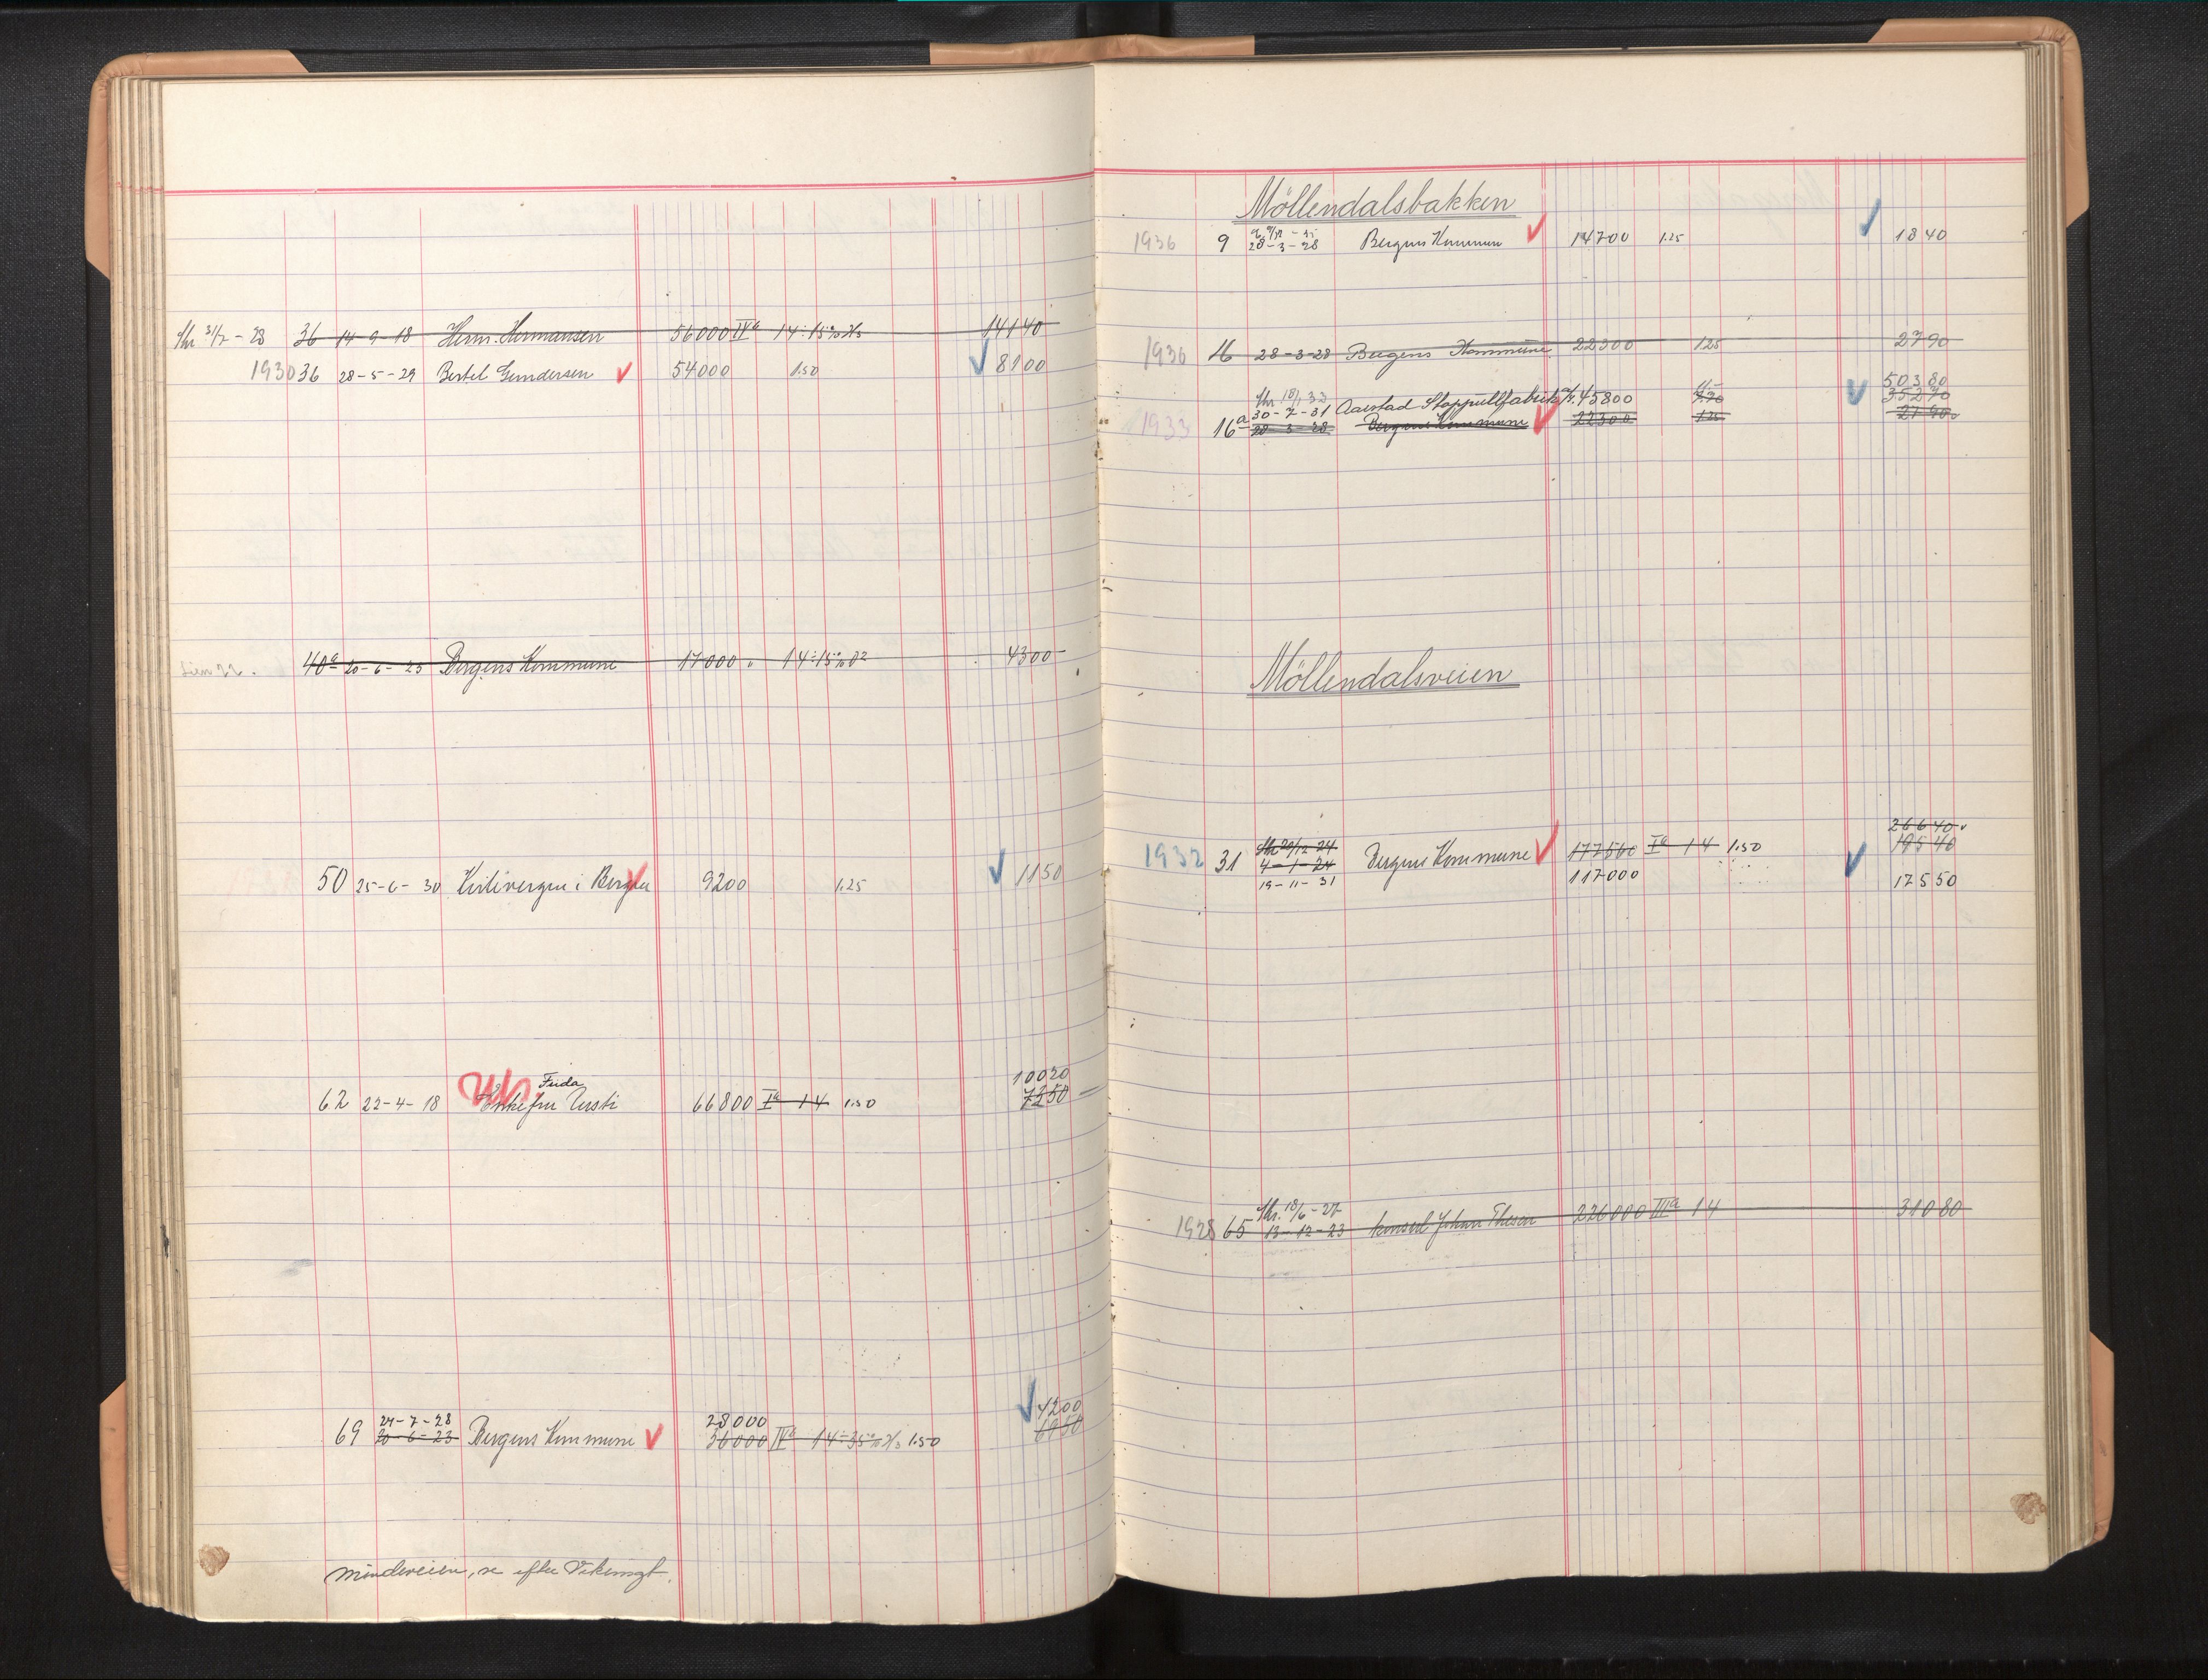 Skr 31/7 - 28 36 14-9-18 Herm. Hermansen 56000 IVa 14÷15% 2/3 14140
1930 36 28-5-29 Bertel Gundersen 54000 1.50 8100
40a 20-6-23 Bergens Kommune 17000 " 14÷15% 4300
50 25-6-30 i Bergen 9200 1.25 1150
10020
Frida
62 22-4-18 Enkefru 66800 Ia 14 1.50 7350
4200
24-7-28 28000
69 20-6-23 Bergens Kommune 36000 IVa 14÷35% 2/3 1.50 6950
Mindeveien, se efter
Möllendalsbakken
1936 9 28-3-28 Bergens Kommune 14700 1.25 1840
1936 16 28-3-28 Bergens Kommune 22300 1.25 2790
Skr 18/1 33 50380
30-7-31 Aarstad Stoppullfabrik 45800 35270
1933 16a 28-3-28 Bergens Kommune 22300 1.25 2790
Möllendalsveien
26640
Skr 20/12 24
1932 31 4-1-24 Bergens Kommune 177560 Ia 14 1.50 19540
19-11-31 117000 17550
Skr. 18/6-27
1928 65 13-12-23 Konsul Johan Thesen 226000 IIIa 14 31080